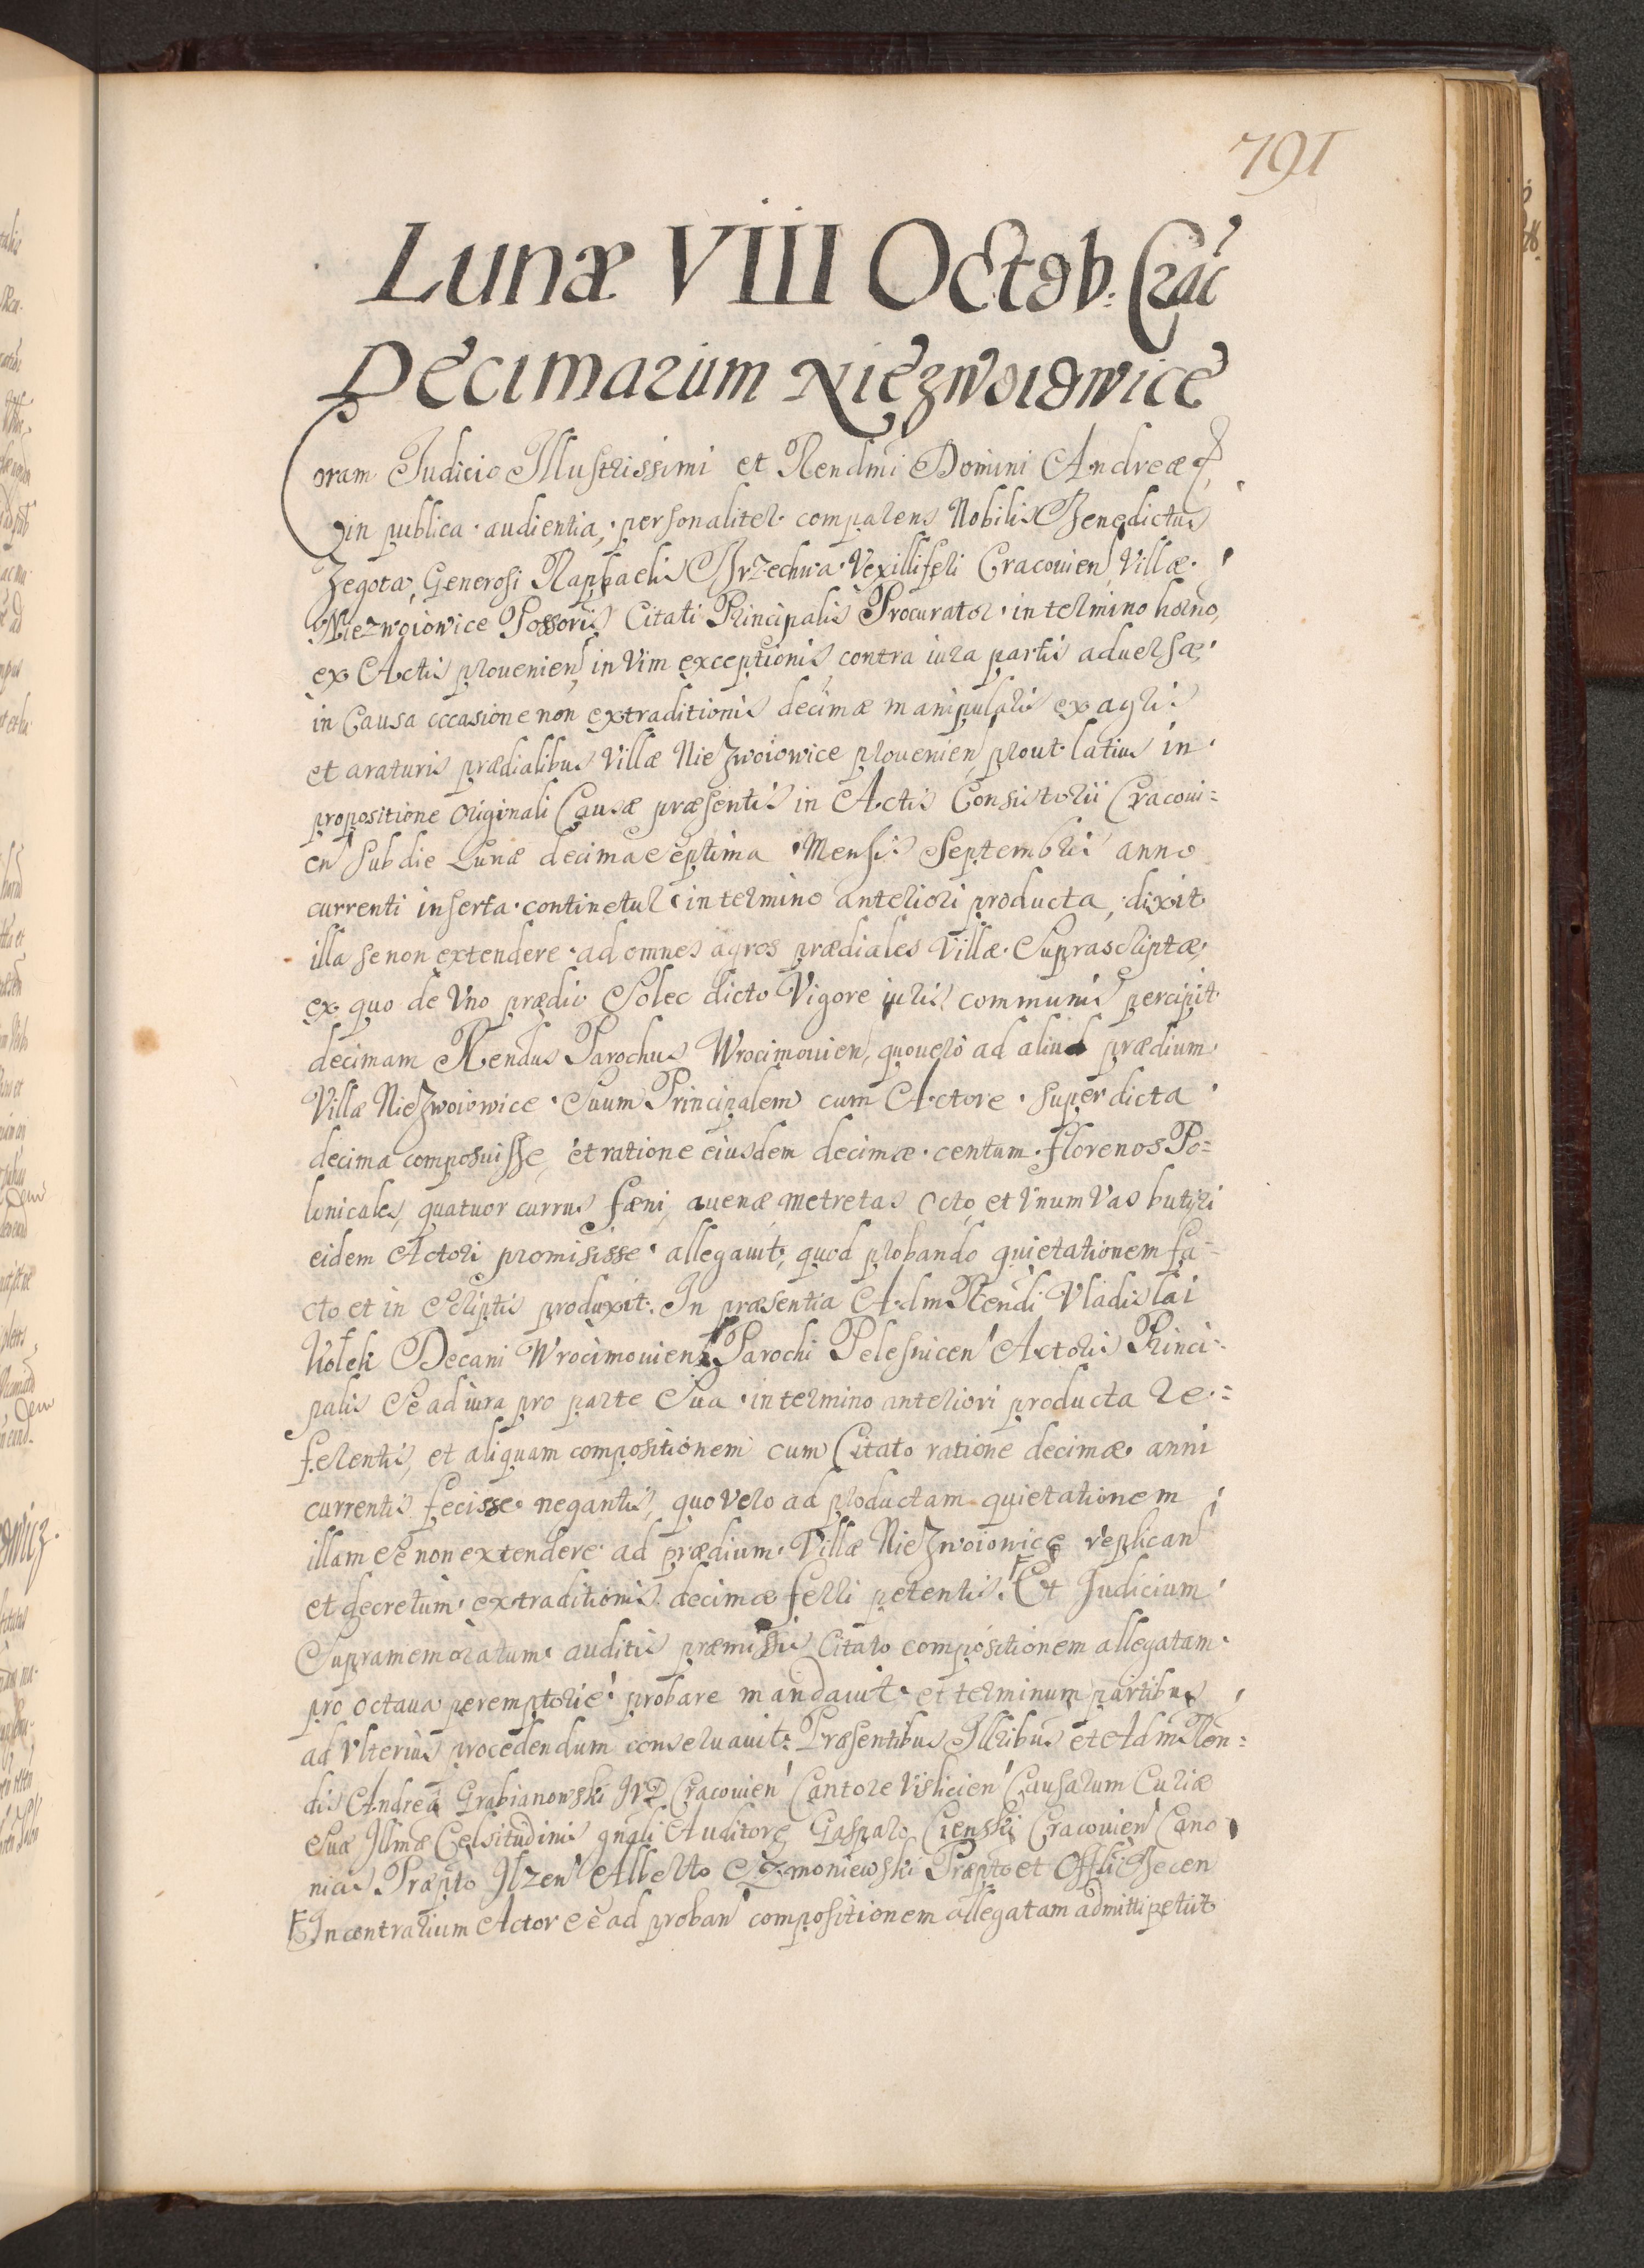 791
Lunæ VIII Octob. Crac
Decimarum Niezwoiowice
Coram Judicio Illustrissimi et Rendmi Domini Andreæ &,
in publica audientia, personaliter comparens Nobilis Benedictus
Zegota, Generosi Raphaelis Brzechwa Vexilliferi Cracouien, Villæ
Niezwoiowice Possoris Citati Principalis Procurator in termino horno,
ex Actis prouenien, in vim exceptionis contra iura partis aduersæ,
in Causa occasione non extraditionis decimæ manipularis ex agris
et araturis prædialibus Villæ Niezwoiowice prouenien, prout latius in
propositione originali Causæ præsentis in Actis Consistorii Cracoui=
en sub die Lunæ decimaseptima Mensis Septembris anno
currenti inserta continetur in termino anteriori producta, dixit
illa se non extendere ad omnes agros prædiales Villæ Suprascriptæ,
ex quo de Vno prædio Solec dicto Vigore iuris communis percipit
decimam Rendus Parochus Wrocimouien, quovero ad aliud prædium
Villæ Niezwoiowice Suum Principalem cum Actore super dicta
decima composuisse, et ratione eiusdem decimæ centum florenos Po=
lonicales, quatuor currus fæni, auenæ metretas octo, et Vnum Vas butyri
eidem Actori promisisse allegauit, quod probando quietationem fa=
cto et in Scriptis produxit. In præsentia AdmRendi Vladislai
Kołek Decani Wrocimouien Parochi Pelesnicen Actoris Princi=
palis Se ad iura pro parte Sua in termino anteriori producta re=
ferentis, et aliquam compositionem cum Citato ratione decimæ anni
currentis fecisse negantis, quo vero ad productam quietationem
illam se non extendere ad prædium Villæ Niezwoiowice replican
et decretum extraditionis decimæ ferri petentis. Et Judicium
Supramemoratum auditis præmissis Citato compositionem allegatam
pro octaua peremptorie probare mandauit et terminum partibus
ad Vlterius procedendum conseruauit. Præsentibus Illribus et AdmRen=
dis Andrea Grabianowski IVD Cracouien Cantore Vislicien Causarum Curiæ
Suæ Illmæ Celsitudinis gnali Auditore, Gasparo Cienski Cracouien Cano
nicis Præpto Ilzen Alberto Szmoniewski Præpto et Offli Becen
In contrarium Actor se ad proban compositionem allegatam admitti petiit